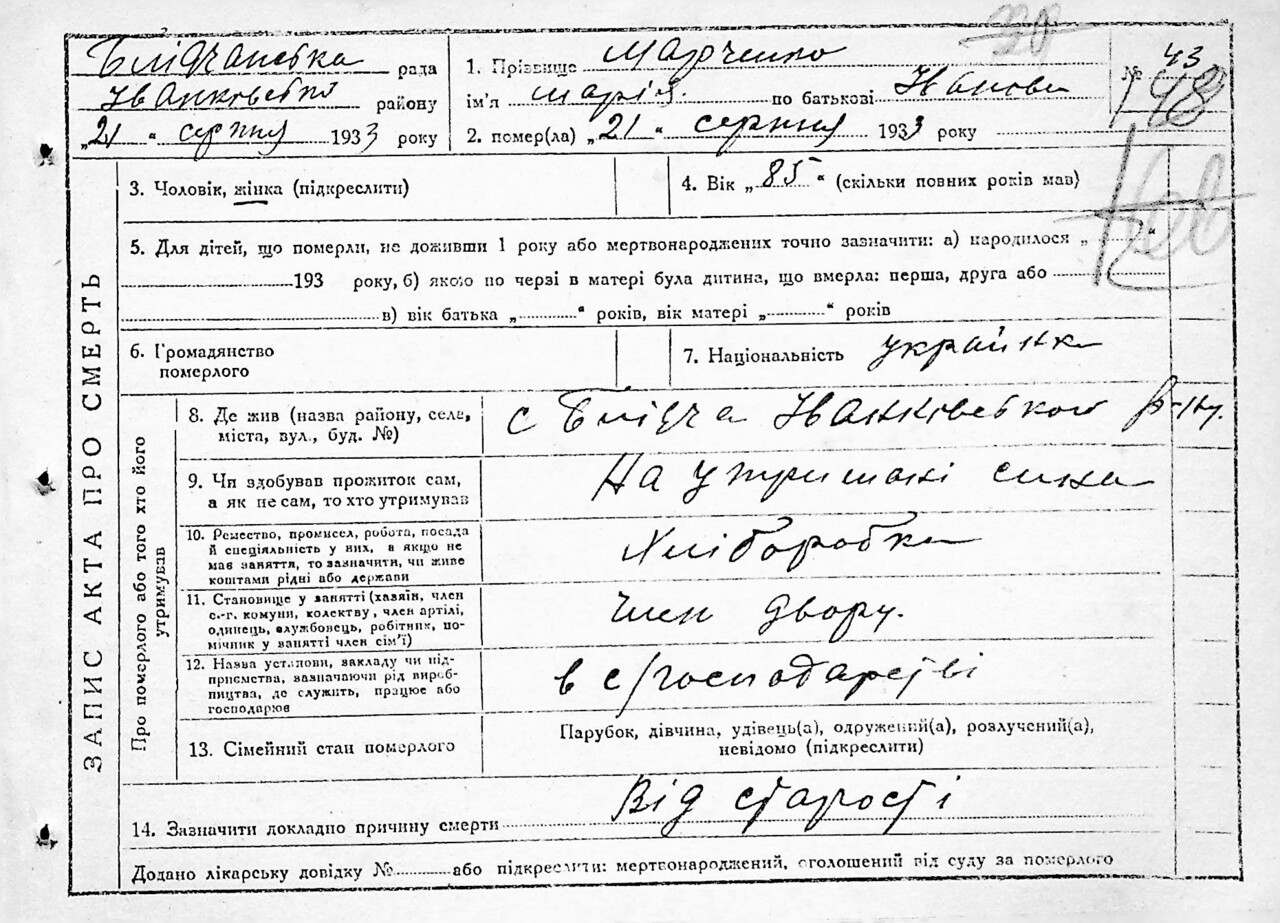 Блідчанська рада
Іванковсько району
„21“ серпня 1933 року
1. Прізвище Марченко
ім'я марія. по батькові Іванови
2. помер(ла) „21“ серпня 1933 року
№ 43
148
ЗАПИС АКТА ПРО СМЕРТЬ
3. Чоловік, жінка (підкреслити)
4. Вік „85“ (скільки повних років мав)
5. Для дітей, що померли, не доживши 1 року або мертвонароджених точно зазначити: а) народилося „ “
193 року, б) якою по черзі в матері була дитина, що вмерла: перша, друга або
в) вік батька „ “ років, вік матері „ “ років
6. Громадянство
померлого
7. Національність українка
Про померлого або того хто його
утримував
8. Де жив (назва району, села,
міста, вул., буд. №)
с Блідча Іванковського р-ну.
9. Чи здобував прожиток сам,
а як не сам, то хто утримував
На утримані сина
10. Ремество, промисел, робота, посада
й спеціяльність у них, а якщо не
має заняття, то зазначити, чи живе
коштами рідні або держави
Хліборобка
11. Становище у занятті (хазяїн, член
с.-г. комуни, колективу, член артілі,
одинець, службовець, робітник, по-
мічник у занятті член сім'ї)
член двору.
12. Назва установи, закладу чи під-
приємства, зазначаючи рід вироб-
ництва, де служить, працює або
господарює
в с/господарстві
13. Сімейний стан померлого
Парубок, дівчина, удівець(а), одружений(а), розлучений(а),
невідомо (підкреслити)
14. Зазначити докладно причину смерти Від старості
Додано лікарську довідку № або підкреслити: мертвонароджений, оголошений від суду за померлого